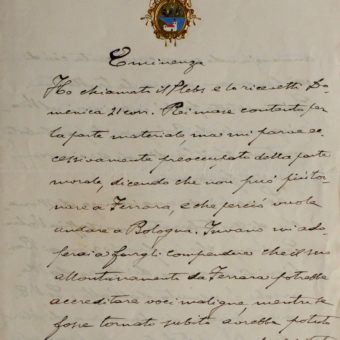 Eminenza
Ho chiamato il Plebs e lo ricevetti Do-
menica 21 corr. Rimase contento per
la parte materiale, ma mi parve ec-
cessivamente preoccupato della parte
morale, dicendo che non può più tor-
nare a Ferrara, e che perciò vuole
andare a Bologna. Invano mi ado-
perai a fargli comprendere che il suo
allontanamento da Ferrara potrebbe
accreditare voci maligne, mentre se
fosse tornato subito avrebbe potuto